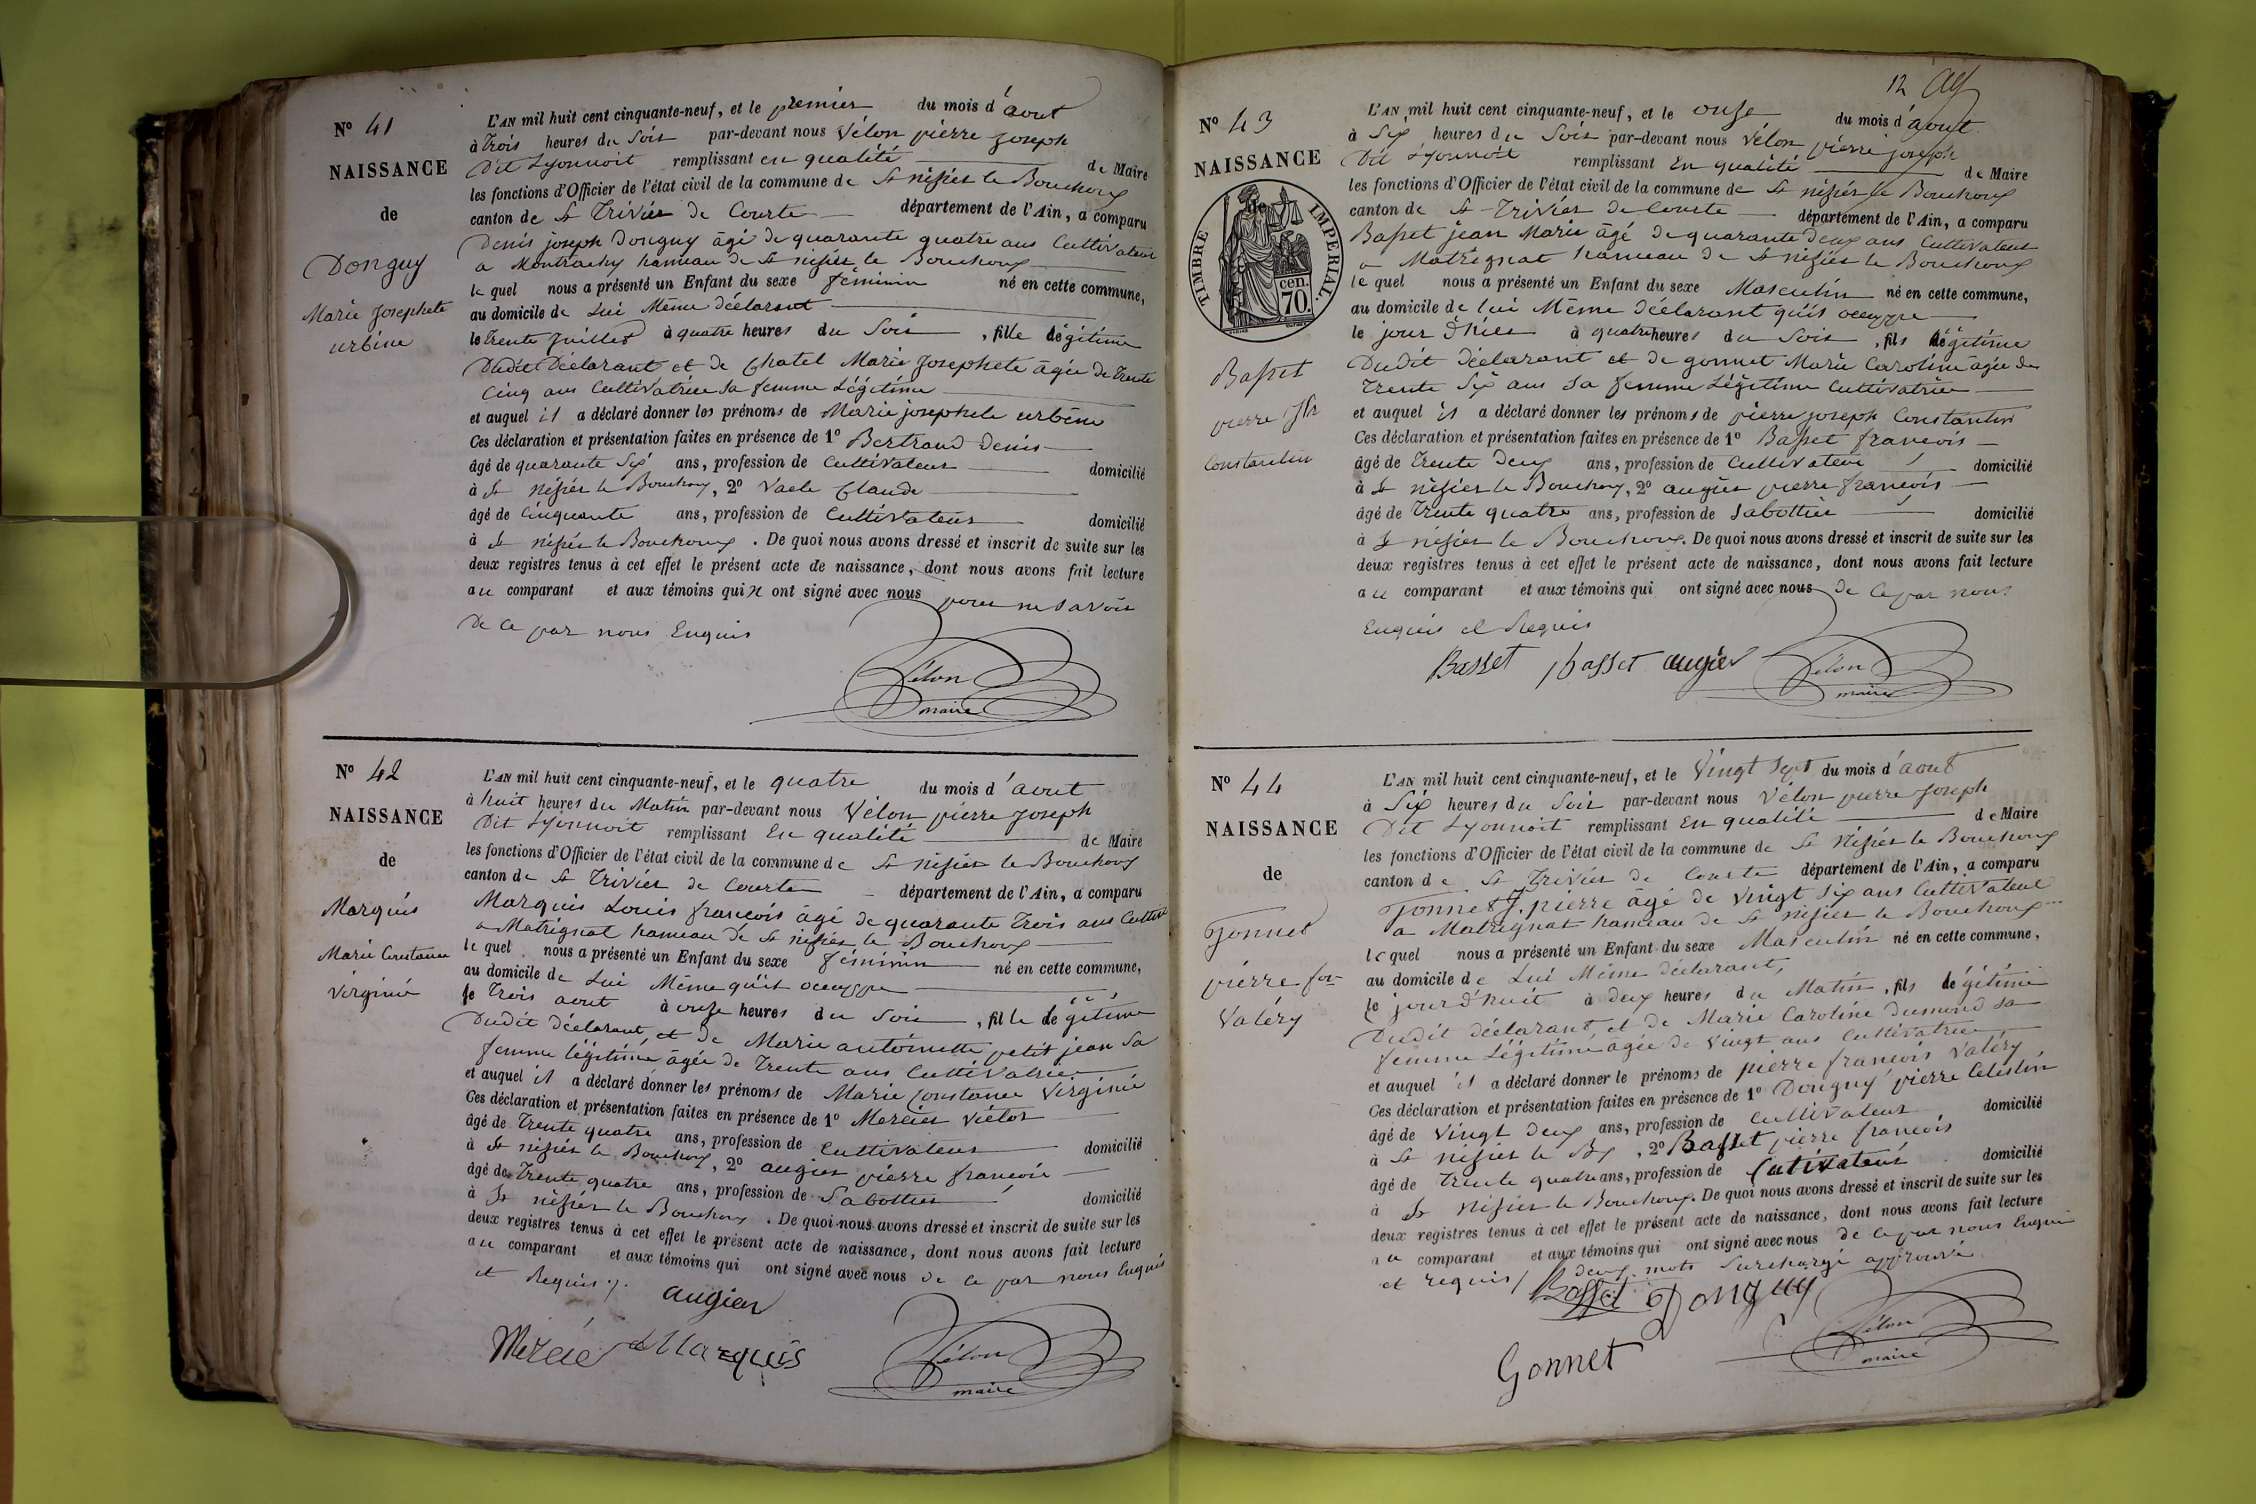 N° 41
NAISSANCE
de
Donguy
Marie Josephete
urbine
L'AN mil huit cent cinquante-neuf, et le premier du mois d'aout
à trois heures du Soir par-devant nous Vélon pierre joseph
Dit Lyonnoit remplissant en qualité de Maire
les fonctions d'Officier de l'état civil de la commune de St nisier le Bouchoux
canton de St Trivier de Courte département de l'Ain, a comparu
Denis joseph Donguy âgé de quarante quatre ans Cultivateur
a Montrachy hameau de St nisier le Bouchoux
le quel nous a présenté un Enfant du sexe féminin né en cette commune,
au domicile de Lui Même déclarant
le trente juillet à quatre heures du Soir, fille légitime
Dudit Déclarant et de Chatel Marie Josephete âgée de trente
Cinq ans Cultivatrice Sa femme Légitime
et auquel il a déclaré donner les prénoms de Marie josephete urbine
Ces déclaration et présentation faites en présence de 1° Bertrand Denis
âgé de quarante Six ans, profession de Cultivateur domicilié
à St nisier le Bouchoux, 2° Vacle Claude
âgé de Cinquante ans, profession de Cultivateur domicilié
à St nisier le Bouchoux. De quoi nous avons dressé et inscrit de suite sur les
deux registres tenus à cet effet le présent acte de naissance, dont nous avons fait lecture
au comparant et aux témoins qui n ont signé avec nous pour ne savoir
De ce par nous Enquis
Vélon
maire
N° 42
NAISSANCE
de
Marquis
Marie Constance
Virginie
L'AN mil huit cent cinquante-neuf, et le quatre du mois d'aout
à huit heures du Matin par-devant nous Vélon pierre joseph
Dit Lyonnoit remplissant En qualité de Maire
les fonctions d'Officier de l'état civil de la commune de St nisier le Bouchoux
canton de St Trivier de Courte département de l'Ain, a comparu
Marquis Louis françois âgé de quarante trois ans
a Matrignat hameau de St nisier le Bouchoux
le quel nous a présenté un Enfant du sexe féminin né en cette commune,
au domicile de Lui Même qu'il occuppe
le Trois aout à onze heures du Soir, fille légitime
Dudit déclarant, et de Marie antoinette petit jean Sa
femme légitime âgée de Trente ans Cultivatrice
et auquel il a déclaré donner les prénoms de Marie Constance Virginie
Ces déclaration et présentation faites en présence de 1° Mercier Victor
âgé de trente quatre ans, profession de Cultivateur domicilié
à St nisier le Bouchoux, 2° augier pierre françois
âgé de Trente quatre ans, profession de Sabottier domicilié
à St nisier le Bouchoux. De quoi nous avons dressé et inscrit de suite sur les
deux registres tenus à cet effet le présent acte de naissance, dont nous avons fait lecture
au comparant et aux témoins qui ont signé avec nous de ce par nous Enquis
et Requis
augier
Mercier Marquis
Vélon
maire
12
N° 43
NAISSANCE
de
TIMBRE IMPERIAL.
cen.
70.
Basset
pierre Jh
Constantin
L'AN mil huit cent cinquante-neuf, et le onze du mois d'aout
à Six heures du Soir par-devant nous Vélon pierre joseph
Dit Lyonnoit remplissant En qualité de Maire
les fonctions d'Officier de l'état civil de la commune de St nisier le Bouchoux
canton de St Trivier de Courte département de l'Ain, a comparu
Basset jean Marie âgé de quarante deux ans Cultivateur
a Matrignat hameau de St nisier le Bouchoux
le quel nous a présenté un Enfant du sexe Masculin né en cette commune,
au domicile de lui Même déclarant qu'il occuppe
le jour d'hier à quatre heures du Soir, fils légitime
Dudit déclarant et de gonnet Marie Caroline âgée de
trente Six ans Sa femme Légitime Cultivatrice
et auquel il a déclaré donner les prénoms de pierre joseph Constantin
Ces déclaration et présentation faites en présence de 1° Basset françois
âgé de trente deux ans, profession de Cultivateur domicilié
à St nisier le Bouchoux, 2° augier pierre françois
âgé de Trente quatre ans, profession de Sabottier domicilié
à St nisier le Bouchoux. De quoi nous avons dressé et inscrit de suite sur les
deux registres tenus à cet effet le présent acte de naissance, dont nous avons fait lecture
au comparant et aux témoins qui ont signé avec nous de ce par nous
Enquis et Requis
Basset basset augier
Vélon
maire
N° 44
NAISSANCE
de
Gonnet
pierre for
Valéry
L'AN mil huit cent cinquante-neuf, et le Vingt Sept du mois d'aout
à Six heures du Soir par-devant nous Vélon pierre joseph
Dit Lyonnoit remplissant En qualité de Maire
les fonctions d'Officier de l'état civil de la commune de St nisier le Bouchoux
canton de St Trivier de Courte département de l'Ain, a comparu
Gonnet J. pierre âgé de Vingt Six ans Cultivateur
a Matrignat hameau de St nisier le Bouchoux
le quel nous a présenté un Enfant du sexe Masculin né en cette commune,
au domicile de Lui Même déclarant,
le jour d'huit à deux heures du Matin, fils légitime
Dudit déclarant et de Marie Caroline Dumond Sa
femme Légitime âgée de Vingt ans Cultivatrice
et auquel il a déclaré donner le prénoms de pierre françois Valéry
Ces déclaration et présentation faites en présence de 1° Donguy pierre Celestin
âgé de Vingt deux ans, profession de Cultivateur domicilié
à St nisier le Bx, 2° Basset pierre françois
âgé de Trente quatre ans, profession de Cultivateur domicilié
à St nisier le Bouchoux. De quoi nous avons dressé et inscrit de suite sur les
deux registres tenus à cet effet le présent acte de naissance, dont nous avons fait lecture
au comparant et aux témoins qui ont signé avec nous de ce par nous Enquis
et requis deux mots Surchargé approuvé
Basset Donguy
Gonnet
Vélon
maire